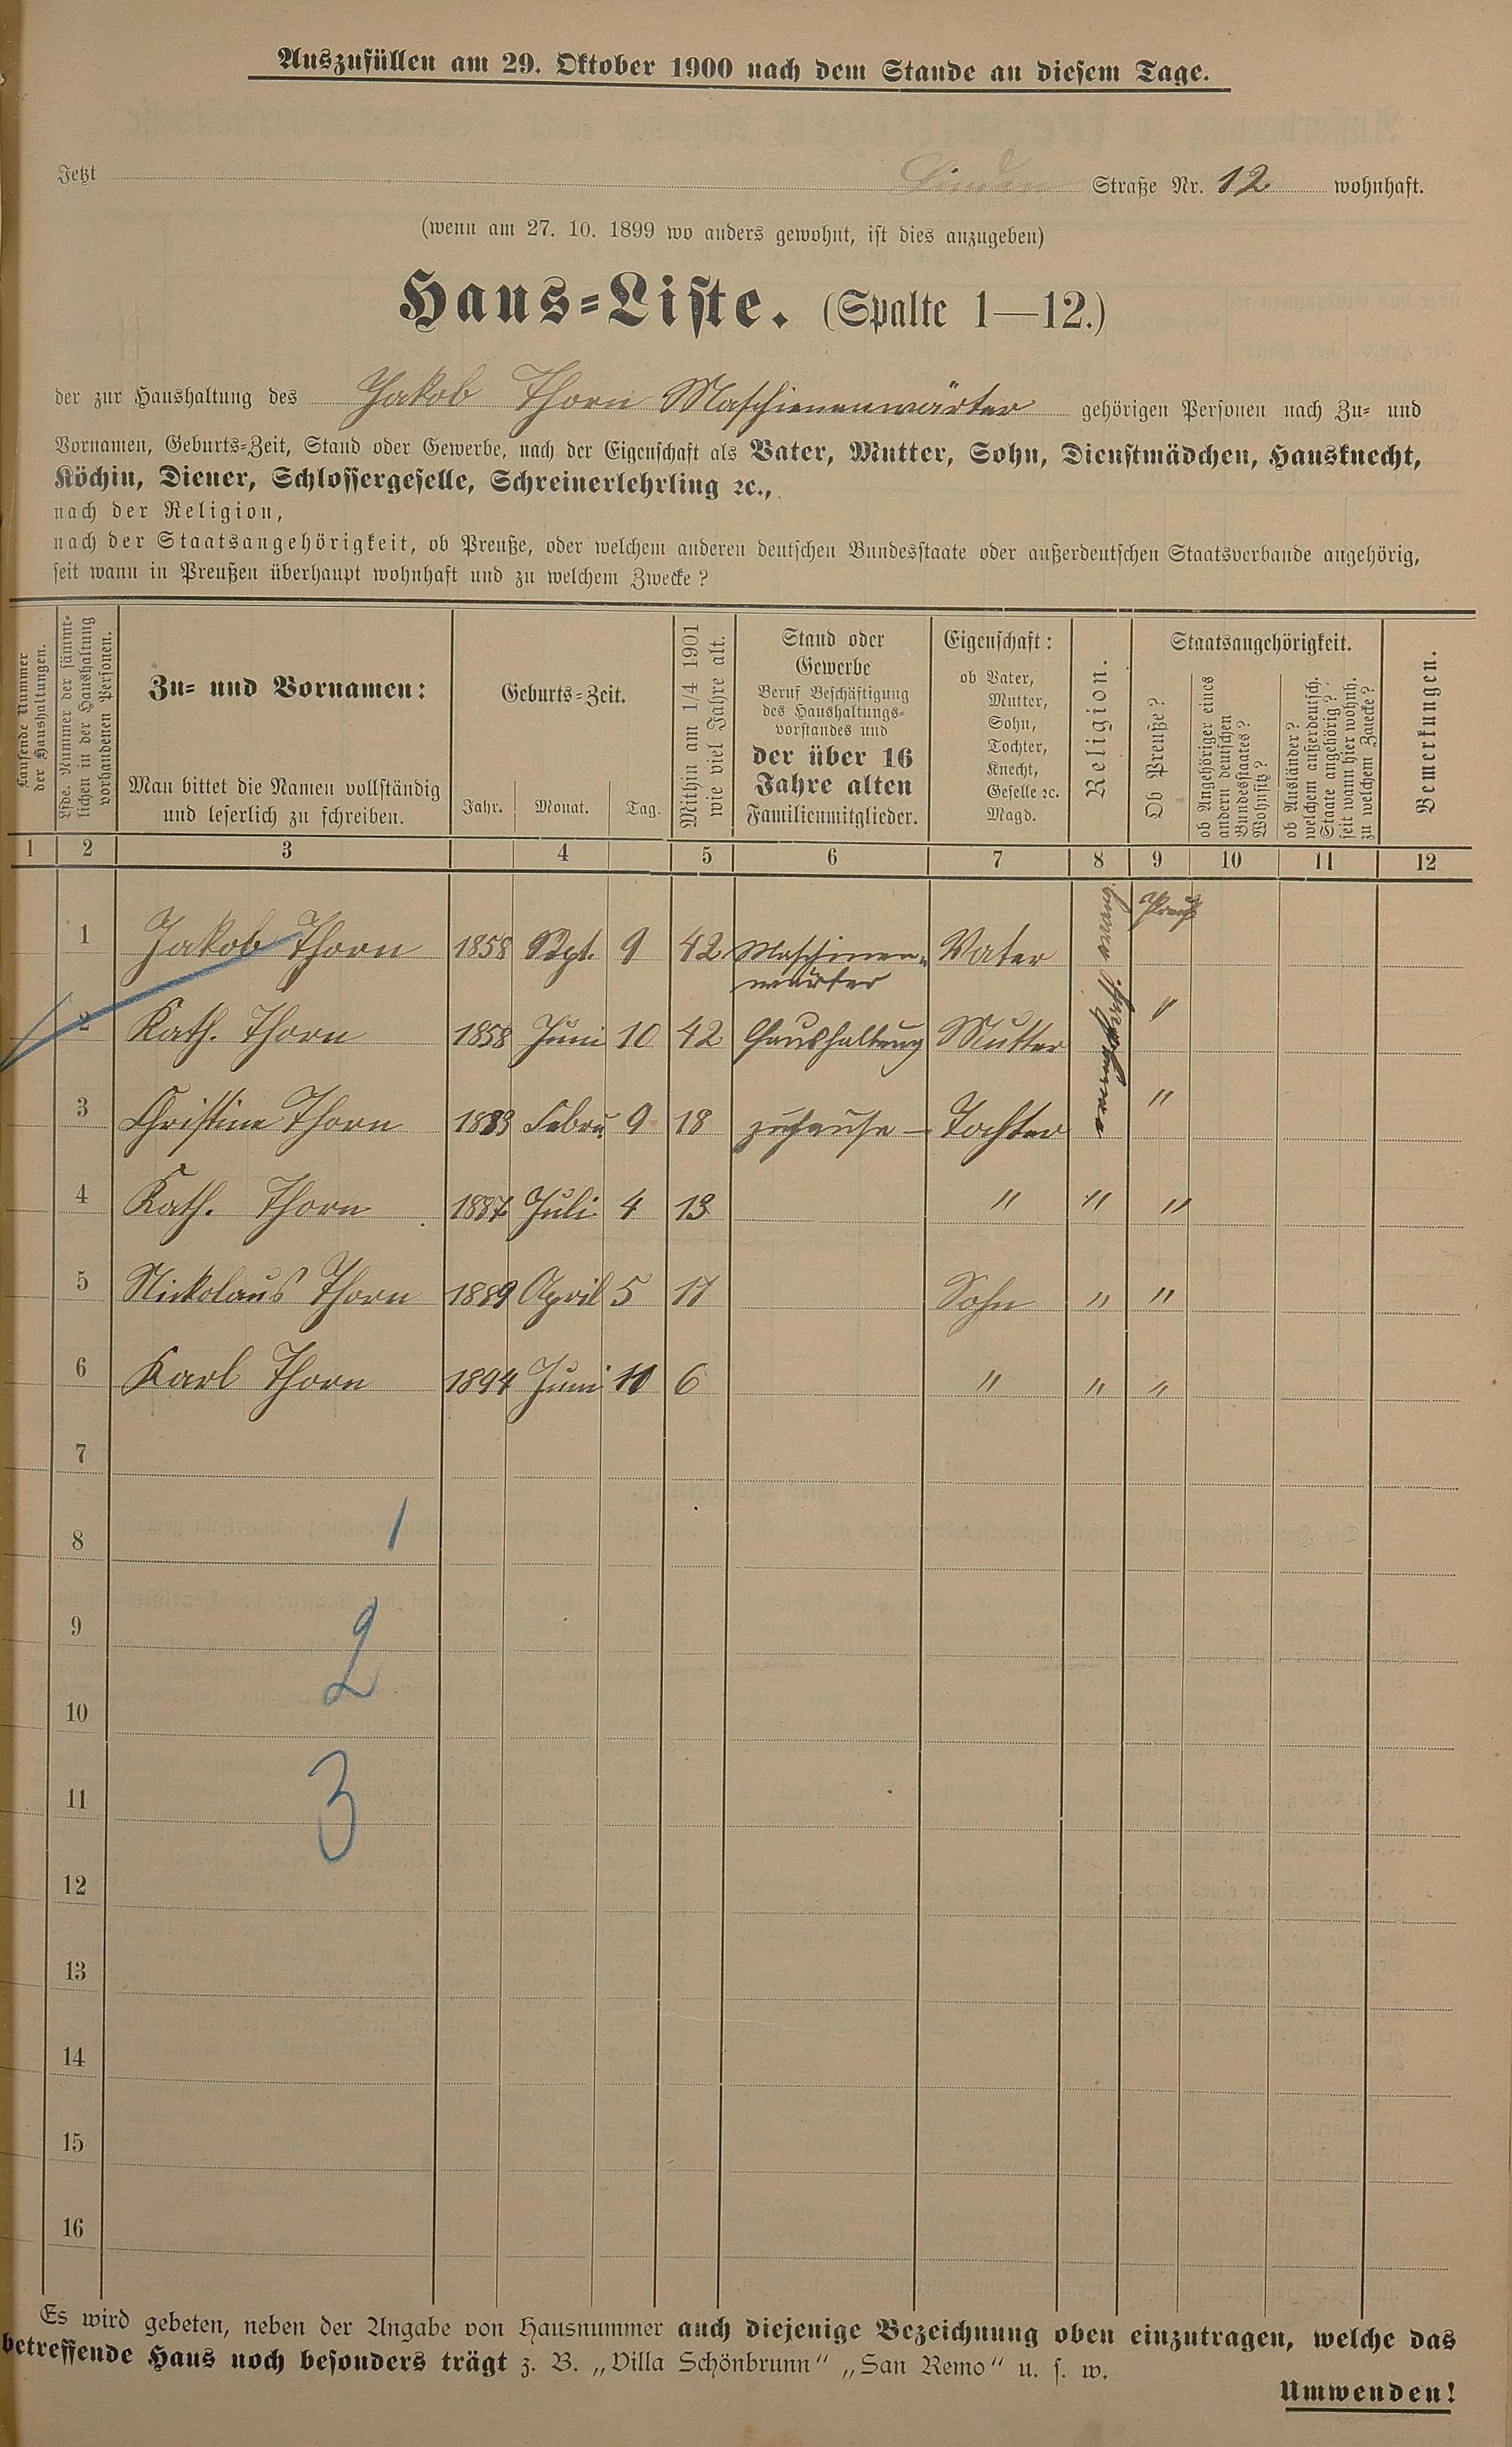 Auszufüllen am 29. Oktober 1900 nach dem Stande an diesem Tage.
Jetzt Linden Straße Nr. 12 wohnhaft.
(wenn am 27. 10. 1899 wo anders gewohnt, ist dies anzugeben)
Haus-Liste. (Spalte 1—12.)
der zur Haushaltung des Jakob Thorn Maschienenwärter gehörigen Personen nach Zu- und
Vornamen, Geburts-Zeit, Stand oder Gewerbe, nach der Eigenschaft als Vater, Mutter, Sohn, Dienstmädchen, Hausknecht,
Köchin, Diener, Schlossergeselle, Schreinerlehrling ꝛc.,
nach der Religion,
nach der Staatsangehörigkeit, ob Preuße, oder welchem anderen deutschen Bundesstaate oder außerdeutschen Staatsverbande angehörig,
seit wann in Preußen überhaupt wohnhaft und zu welchem Zwecke?
Laufende Nummer
der Haushaltungen.
Lfde. Nummer der sämmt-
lichen in der Haushaltung
vorhandenen Personen.
Zu- und Vornamen:
Man bittet die Namen vollständig
und leserlich zu schreiben.
Geburts-Zeit.
Jahr. Monat. Tag.
Mithin am 1/4 1901
wie viel Jahre alt.
Stand oder
Gewerbe
Beruf Beschäftigung
des Haushaltungs-
vorstandes und
der über 16
Jahre alten
Familienmitglieder.
Eigenschaft:
ob Vater,
Mutter,
Sohn,
Tochter,
Knecht,
Geselle ꝛc.
Magd.
Religion.
Staatsangehörigkeit.
Ob Preuße?
ob Angehöriger eines
andern deutschen
Bundesstaates?
Wohnsitz?
ob Ausländer?
welchem außerdeutsch.
Staate angehörig?
seit wann hier wohnh.
zu welchem Zwecke?
Bemerkungen.
1 2 3 4 5 6 7 8 9 10 11 12
1 Jakob Thorn 1858 Sept. 9 42 Maschinen- Vater Preuß
wärter
2 Kath. Thorn 1858 Juni 10 42 Haushaltung Mutter "
3 Christine Thorn 1883 Febru. 9 18 zuhause — Tochter "
4 Kath. Thorn 1887 Juli 4 13 " " "
5 Nickolaus Thorn 1889 April 5 11 Sohn " "
6 Karl Thorn 1894 Juni 10 6 " " "
7
8 1
9 2
10
11 3
12
13
14
15
16
Es wird gebeten, neben der Angabe von Hausnummer auch diejenige Bezeichnung oben einzutragen, welche das
betreffende Haus noch besonders trägt z. B. „Villa Schönbrunn“ „San Remo“ u. s. w.
Umwenden!